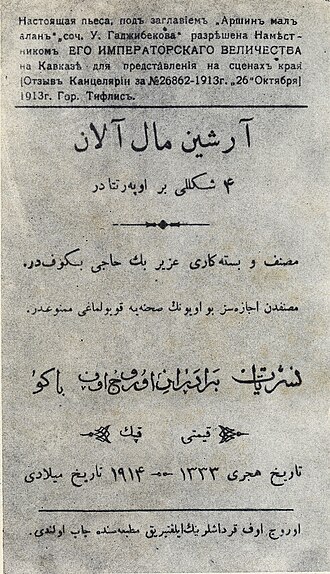 Настоящая пьеса, подъ заглавіемъ „Аршин мал
алан“ „соч. У. Гаджибекова“ разрѣшена Намѣст-
никомъ ЕГО ИМПЕРАТОРСКАГО ВЕЛИЧЕСТВА
на Кавказѣ для представленія на сценахъ края
(Отзывъ Канцеляріи за № 26862-1913г. „26“ Октября)
1913г. Гор. Тифлисъ.
آرشین مال آلان
۴ شکللی بر اوپه‌رتتا در
مصنف و بسته‌کاری عزیر بك حاجی بکوف در.
مصنفدن اجازه‌سز بو اویونك صحنه‌یه قویولماغی ممنوعدر.
نشریات برادران اوروج اوف باکو
قیمتی قپك
تاریخ هجری ۱۳۳۳ — ۱۹۱۴ تاریخ میلادی
اوروج اوف قرداشلرینك ایلقتیریق مطبعه‌سنده چاپ اولندی.